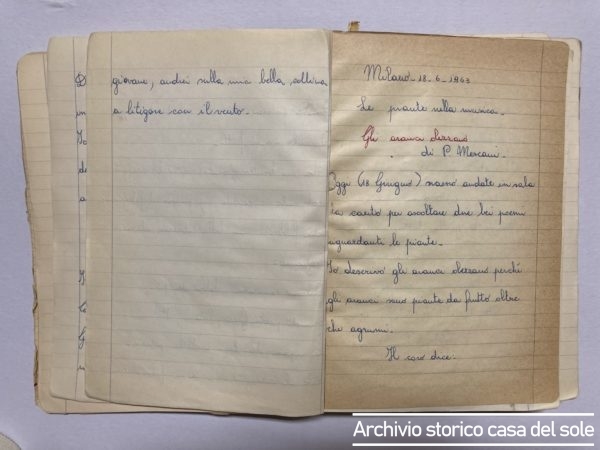 giovane, andrei sulla mia bella collina
a litigare con il vento.
Milano - 18 - 6 - 1963
Le piante nella musica.
Gli aranci olezzano
di P. Mascagni.
Oggi (18 Giugno) siamo andate in sala
da canto per ascoltare due bei poemi
riguardanti le piante.
Io descrivo gli aranci olezzano perché
gli aranci sono piante da frutto oltre
che agrumi.
Il coro dice:
Archivio storico casa del sole